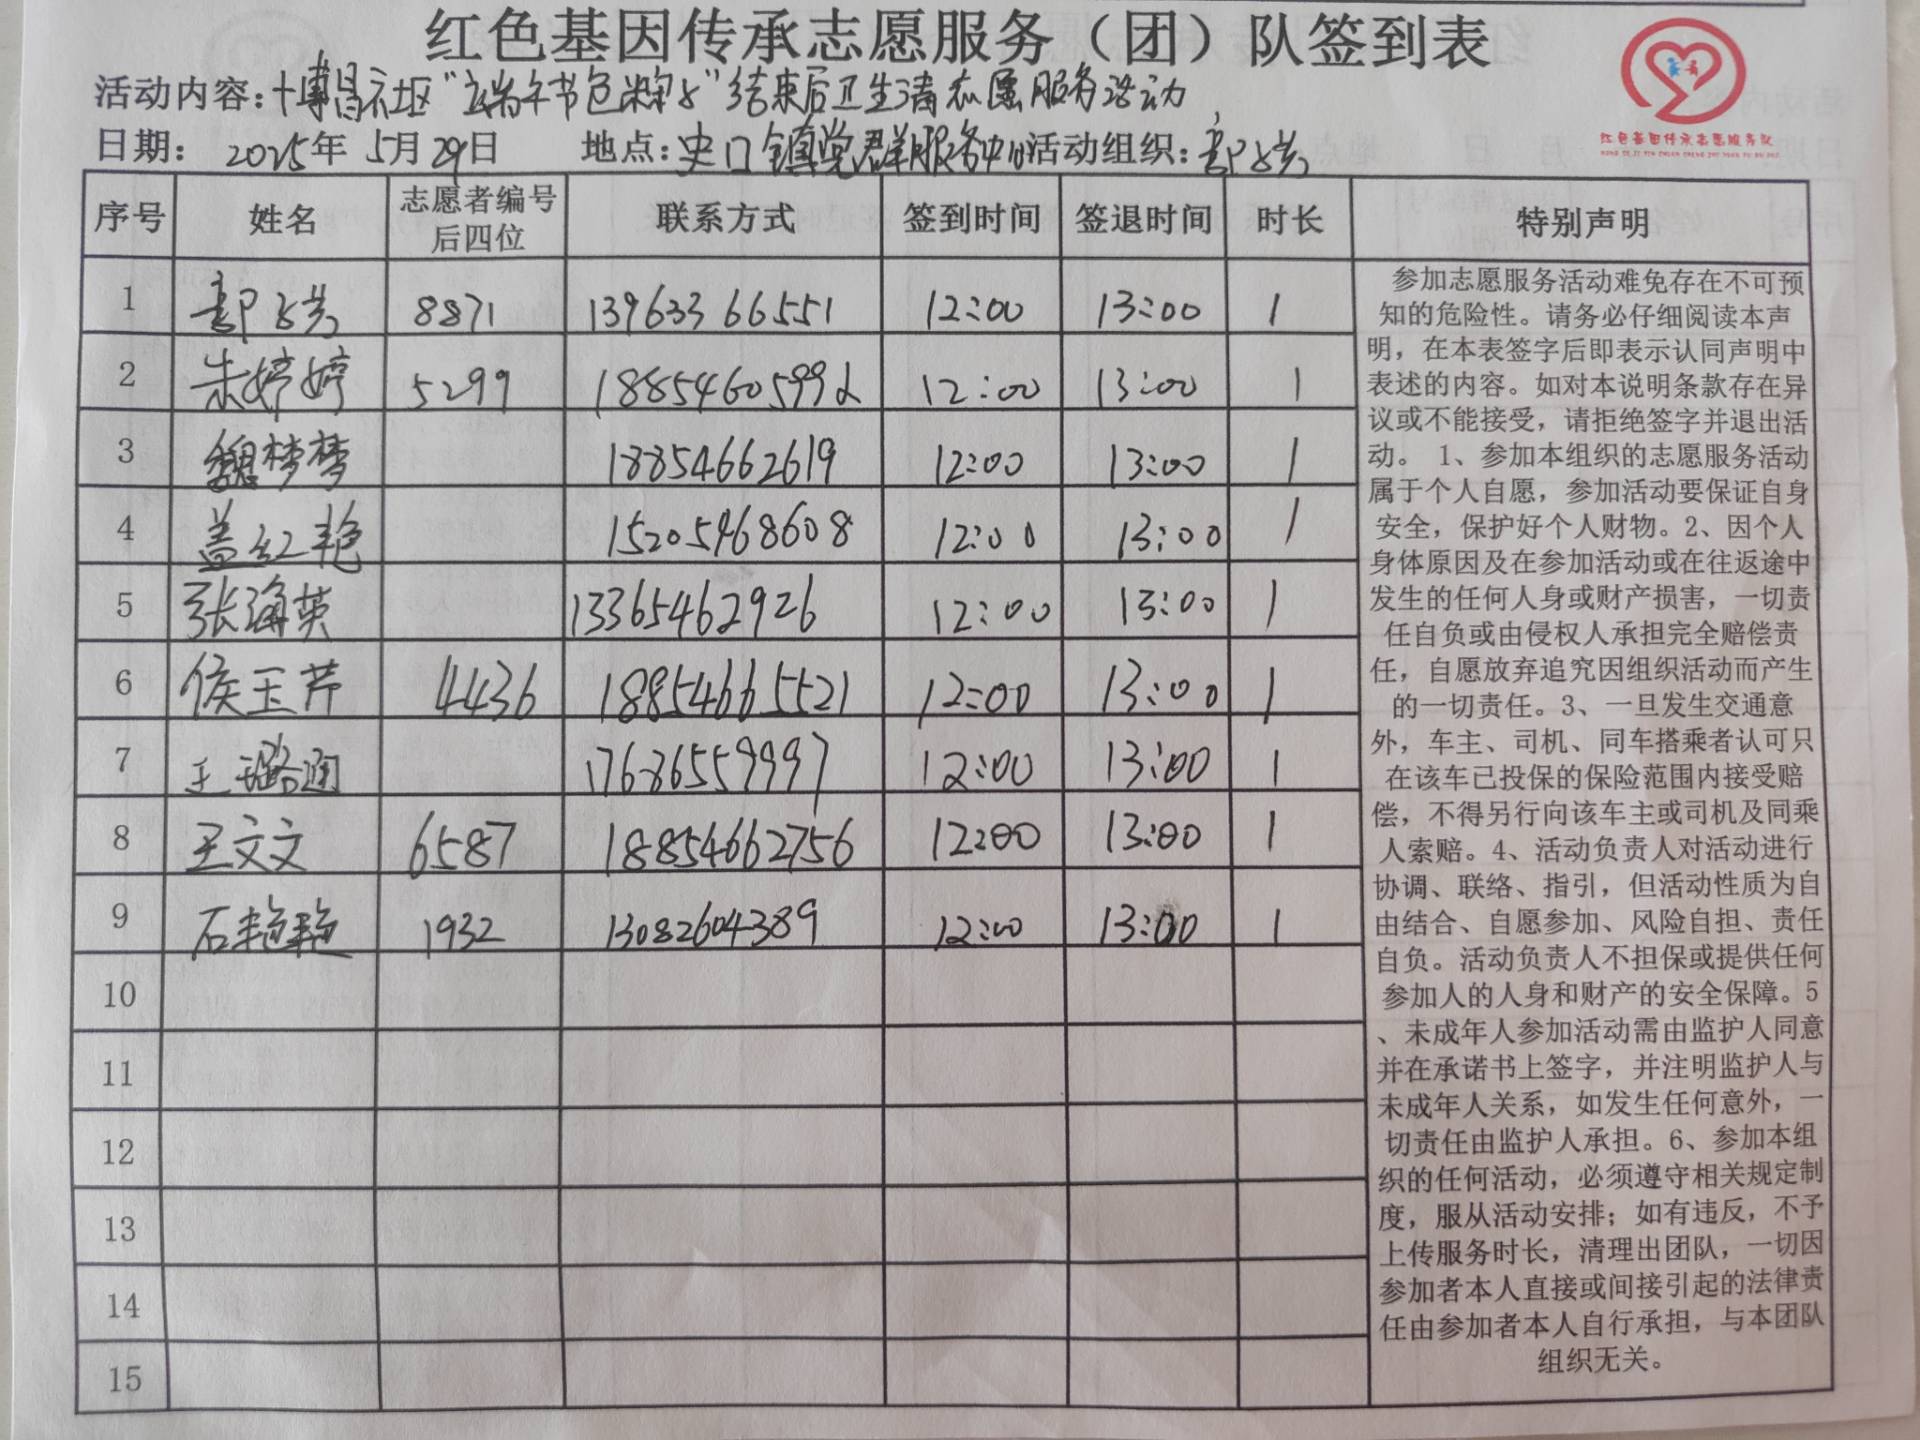 红色基因传承志愿服务（团）队签到表
活动内容：博昌社区“端午节包粽子”结束后卫生清志愿服务活动
日期： 2025年 5月29日 地点：史口镇党群服务中心 活动组织：
红色基因传承志愿服务队
序号 姓名 志愿者编号后四位 联系方式 签到时间 签退时间 时长 特别声明
1 8871 13963366551 12:00 13:00 1
2 朱婷婷 5299 18854605992 12:00 13:00 1
3 魏梦梦 18854662619 12:00 13:00 1
4 盖红艳 15205468608 12:00 13:00 1
5 张海英 13365462926 12:00 13:00 1
6 侯玉芹 4436 18854665521 12:00 13:00 1
7 王璐 17686559997 12:00 13:00 1
8 王文文 6587 18854662756 12:00 13:00 1
9 石艳艳 1932 13082604389 12:00 13:00 1
10
11
12
13
14
15
参加志愿服务活动难免存在不可预
知的危险性。请务必仔细阅读本声
明，在本表签字后即表示认同声明中
表述的内容。如对本说明条款存在异
议或不能接受，请拒绝签字并退出活
动。 1、参加本组织的志愿服务活动
属于个人自愿，参加活动要保证自身
安全，保护好个人财物。2、因个人
身体原因及在参加活动或在往返途中
发生的任何人身或财产损害，一切责
任自负或由侵权人承担完全赔偿责
任，自愿放弃追究因组织活动而产生
的一切责任。3、一旦发生交通意
外，车主、司机、同车搭乘者认可只
在该车已投保的保险范围内接受赔
偿，不得另行向该车主或司机及同乘
人索赔。4、活动负责人对活动进行
协调、联络、指引，但活动性质为自
由结合、自愿参加、风险自担、责任
自负。活动负责人不担保或提供任何
参加人的人身和财产的安全保障。5
、未成年人参加活动需由监护人同意
并在承诺书上签字，并注明监护人与
未成年人关系，如发生任何意外，一
切责任由监护人承担。6、参加本组
织的任何活动，必须遵守相关规定制
度，服从活动安排；如有违反，不予
上传服务时长，清理出团队，一切因
参加者本人直接或间接引起的法律责
任由参加者本人自行承担，与本团队
组织无关。